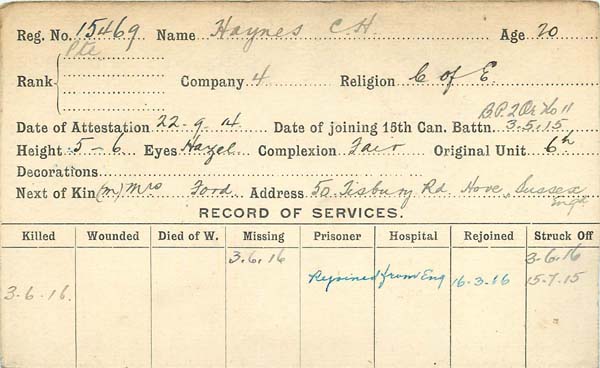 Reg. No. 15469 Name Haynes C H Age 20
Pte
Rank Company 4 Religion C of E.
B.P. 2 Or No 11
Date of Attestation 22-9-14 Date of joining 15th Can. Battn. 3.5.15
Height 5-6 Eyes Hazel Complexion Fair Original Unit 6th
Decorations
Next of Kin (m) Mrs Ford Address 50 Tisbury Rd. Hove, Sussex
Eng.
RECORD OF SERVICES.
Killed Wounded Died of W. Missing Prisoner Hospital Rejoined Struck Off
3.6.16 3-6-16
Rejoined from Eng 16-3-16 15-7-15
3-6-16.